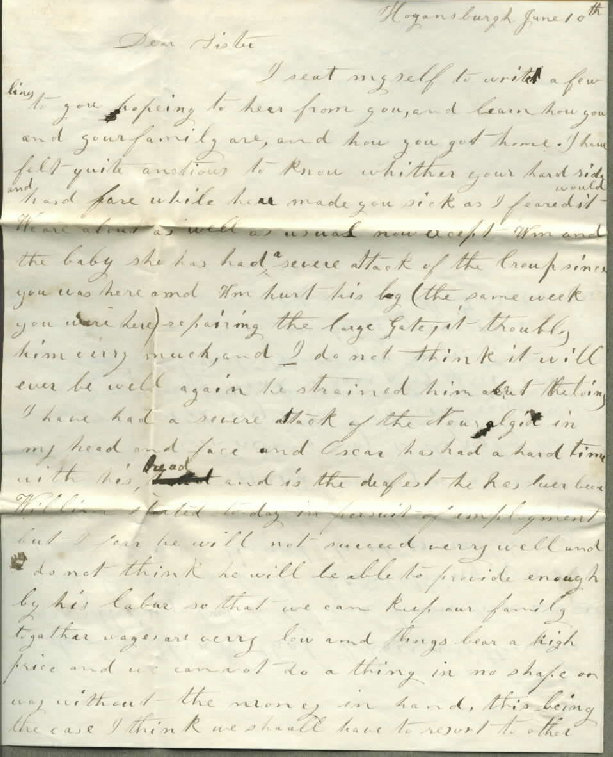 Hogansburgh June 10th
Dear Sister
I seat myself to write a few
lines
to you hopeing to hear from you, and learn how you
and your family are, and how you got home. I have
felt quite anctious to know whither your hard ride
and would
hard fare while here made you sick as I feared it
We are about as well as usual now except Wm and
the baby she has had a severe attack of the Croup since
you was here and Wm hurt his leg (the same week
you were here) repairing the large Gate, it troubls
him verry much, and I do not think it will
ever be well again he strained him about the loins
I have had a severe attack of the Neuralgia in
my head and face and Oscar has had a hard time
head
with his, and is the deafest he has ever been
William started to day in persuit of employment
but I fear he will not succeed verry well and
do not think he will be able to provide enough
by his labor so that we can keep our family
togather wages are verry low and things bear a high
price and we cannot do a thing in no shape or
way without the money in hand, this being
the case I think we shall have to resort to other